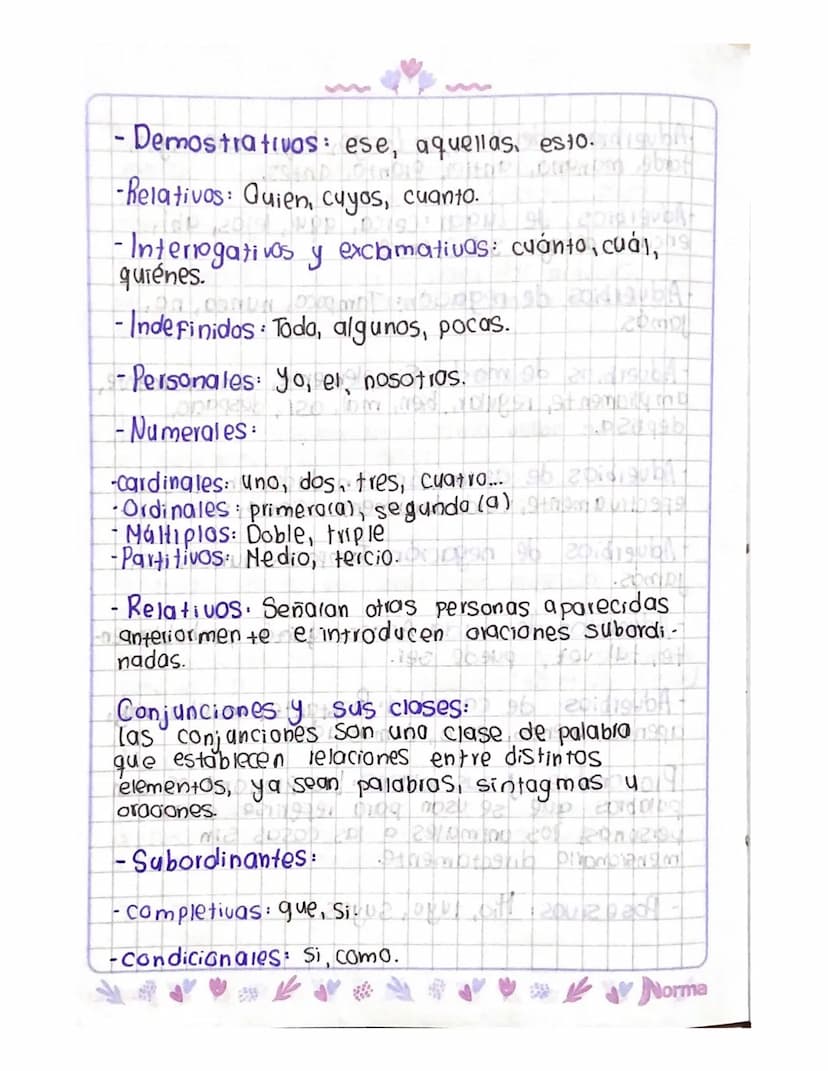 - Demostrativos: ese, aquellas, esto.
- Relativos: Quien, cuyos, cuanto.
- Interrogativos y exclamativas: cuánto, cuál,
quiénes.
- Indefinidos: Todo, algunos, pocas.
- Personales: Yo, el, nosotros.
- Numerales:
- cardinales: uno, dos, tres, cuatro...
- Ordinales: primero(a), segundo (a)
- Múltiplos: Doble, triple
- Partitivos: Medio, tercio.
- Relativos. Señalan otras personas aparecidas
anteriormente e introducen oraciones subordi-
nadas.
Conjunciones y sus clases:
las conjunciones son una clase de palabra
que establecen relaciones entre distintos
elementos, ya sean palabras, sintagmas u
oraciones.
- Subordinantes:
- completivas: que, si.
- condicionales: Si, como.
Norma